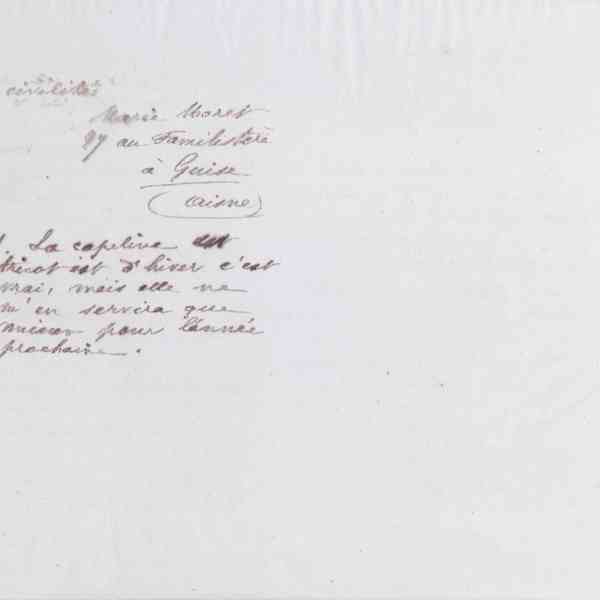 civilités
Marie Moret
97 au Familistère
à Guise
(Aisne)
La capeline
tricot est d'hiver c'est
vrai, mais elle ne
m'en servira que
mieux pour l'année
prochaine.